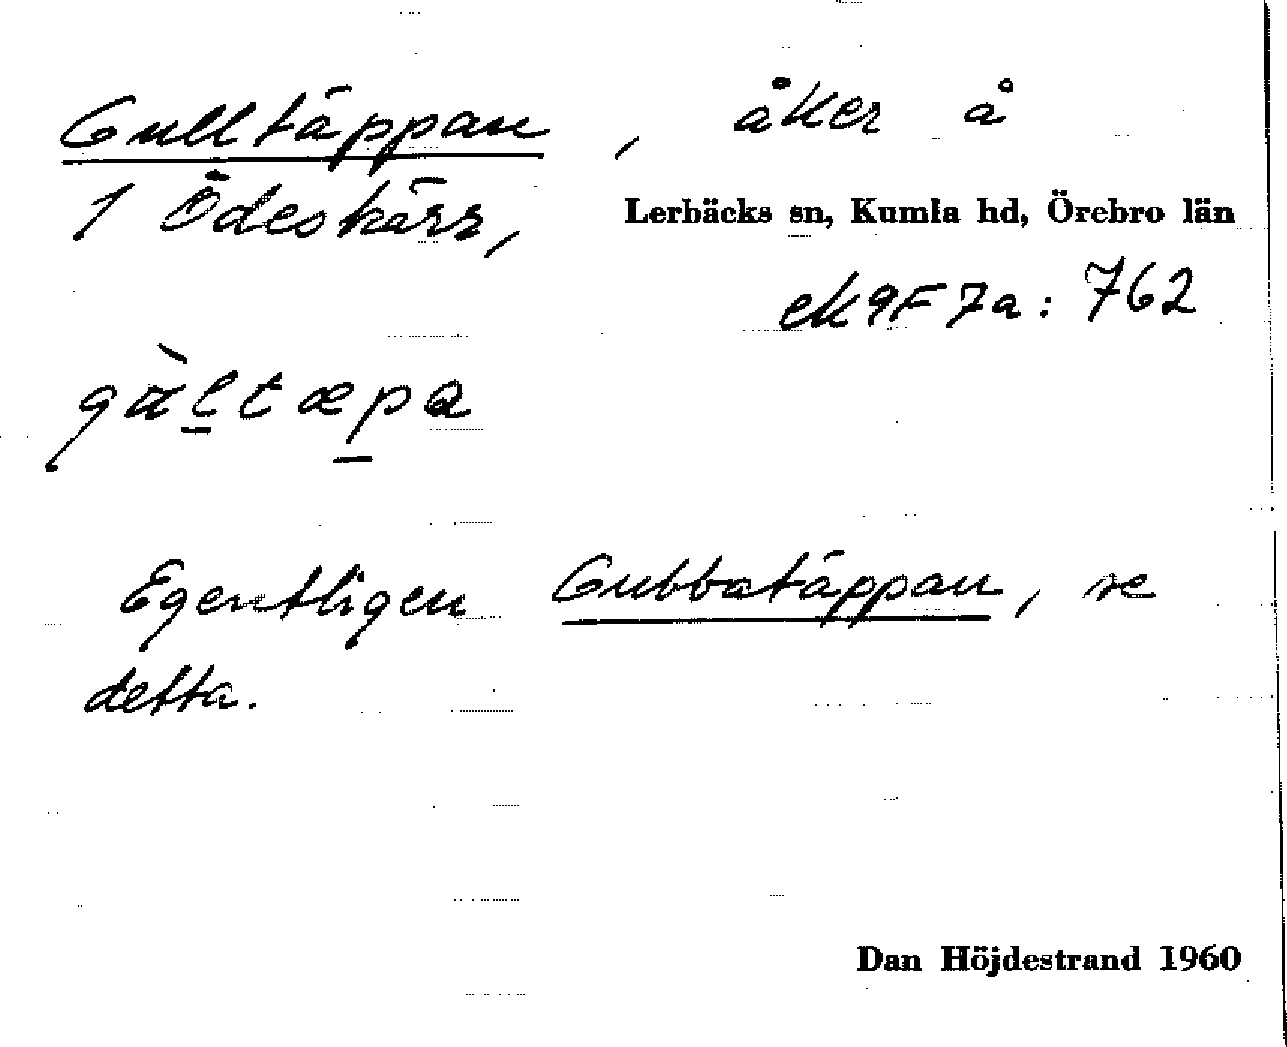 Gulltäppan, åker å
1 Ödeskärr, Lerbäcks sn, Kumla hd, Örebro län
ek 9F 7a: 762
Egentligen Gubbatäppan, se
detta.
Dan Höjdestrand 1960